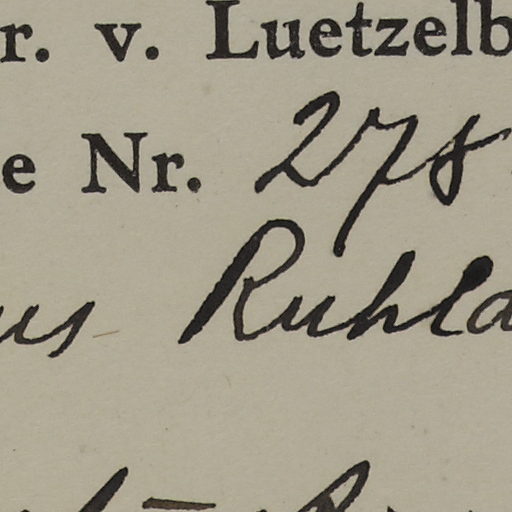 r. v. Luetzelb
e Nr. 278
us Ruhla